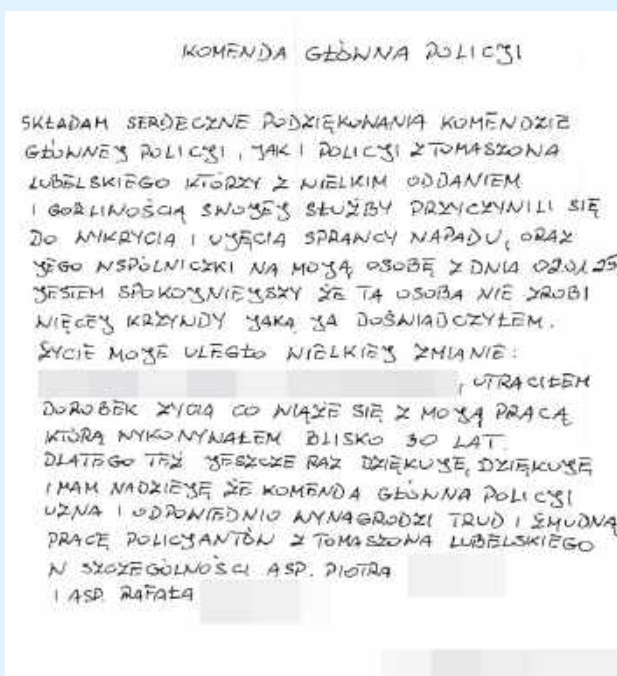 KOMENDA GŁÓWNA POLICJI
SKŁADAM SERDECZNE PODZIĘKOWANIA KOMENDZIE
GŁÓWNEJ POLICJI, JAK I POLICJI Z TOMASZOWA
LUBELSKIEGO KTÓRZY Z WIELKIM ODDANIEM
I GORLIWOŚCIĄ SWOJEJ SŁUŻBY PRZYCZYNILI SIĘ
DO WYKRYCIA I UJĘCIA SPRAWCY NAPADU, ORAZ
JEGO WSPÓLNICZKI NA MOJĄ OSOBĘ Z DNIA 02.01.25
JESTEM SPOKOJNIEJSZY ŻE TA OSOBA NIE ZROBI
WIĘCEJ KRZYWDY JAKĄ JA DOŚWIADCZYŁEM.
ŻYCIE MOJE ULEGŁO WIELKIEJ ZMIANIE:
, UTRACIŁEM
DOROBEK ŻYCIA CO WIĄŻE SIĘ Z MOJĄ PRACĄ
KTÓRĄ WYKONYWAŁEM BLISKO 30 LAT.
DLATEGO TEŻ JESZCZE RAZ DZIĘKUJĘ, DZIĘKUJĘ
I MAM NADZIEJĘ ŻE KOMENDA GŁÓWNA POLICJI
UZNA I ODPOWIEDNIO WYNAGRODZI TRUD I ŻMUDNĄ
PRACĘ POLICJANTÓW Z TOMASZOWA LUBELSKIEGO
W SZCZEGÓLNOŚCI ASP. PIOTRA
I ASP. RAFAŁA